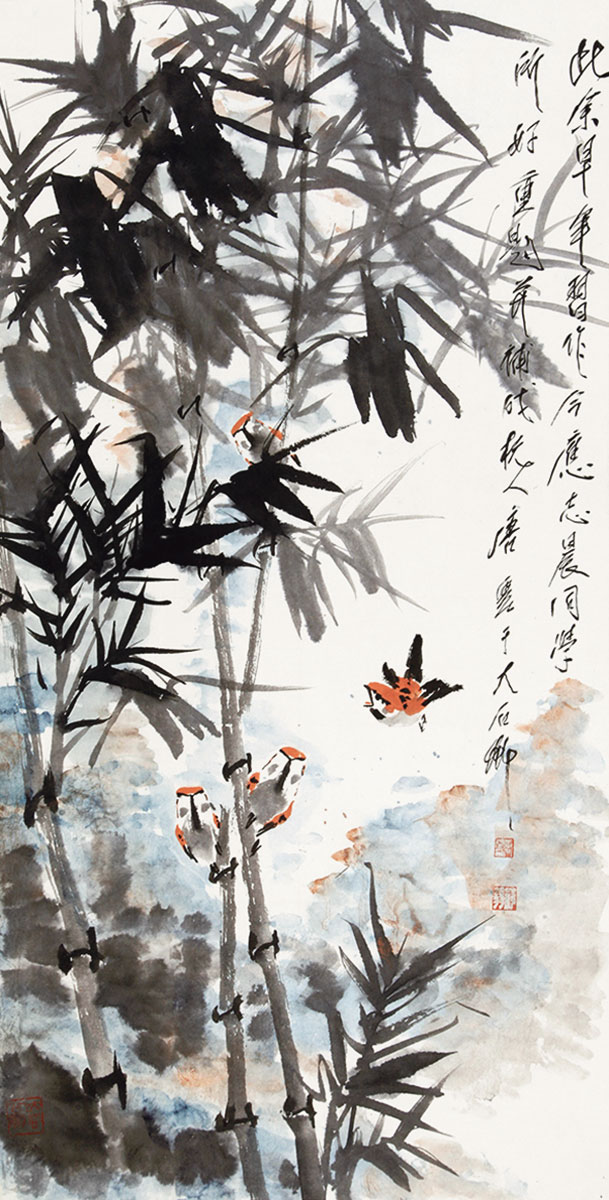 此余早年習作今應志晨同學
所好重題并補成杭人唐雲于大石鄉